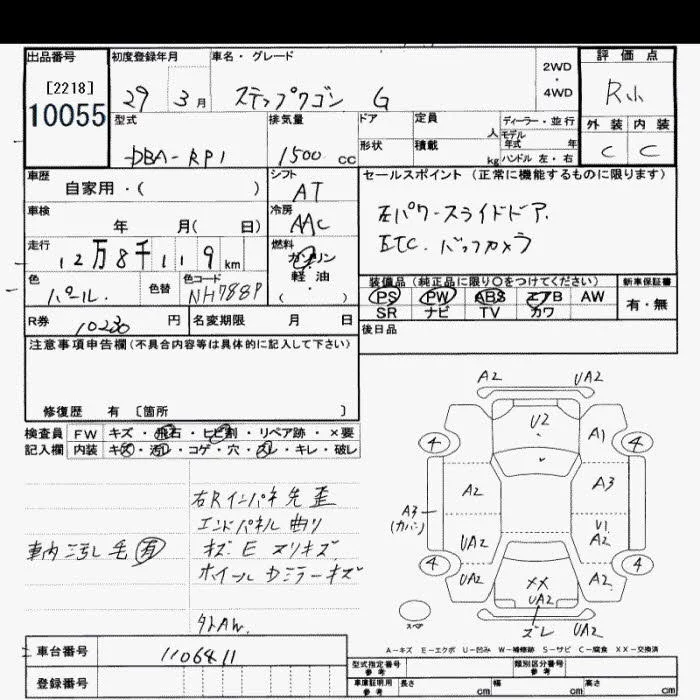 出品番号
[2218]
10055
初度登録年月
29 3月
車名・グレード
ステップワゴン G
2WD
・
4WD
評価点
R小
外装 内装
C C
型式
DBA-RP1
排気量
1500 cc
ドア
形状
定員
人
積載
kg
ディーラー・並行
モデル
年式 年
ハンドル 左・右
車歴
自家用・( )
シフト
AT
セールスポイント(正常に機能するものに限ります)
左パワースライドドア.
ETC. バックカメラ
車検
年 月( 日)
冷房
AAC
走行
12万8千119km
燃料
ガソリン
・
軽・油
( ・ )
色
パール.
色替
色コード
NH788P
装備品(純正品に限り○をつけてください)
PS PW ABS エアB AW
SR ナビ TV カワ
新車保証書
有・無
R券 10230 円
名変期限 月 日
後日品
注意事項申告欄(不具合内容等は具体的に記入して下さい)
修復歴 有 〔箇所 〕
検査員 FW キズ・飛石・ヒビ割・リペア跡・×要
記入欄 内装 キズ・汚レ・コゲ・穴・スレ・キレ・破レ
右Rインパネ先歪
エンドパネル曲り
車内ニ汚レ 毛有
キズ E スリキズ
ホイールカミラーキズ
外AW.
A2 UA2
U2
4 A1 4
A2 A3
A3
(カバー)
V1
UA2 A2
4 UA2 ×× A2 4
UA2
ズレ
スペア
A-キズ E-エクボ U-凹み W-補修跡 S-サビ C-腐食 XX-交換済
車台番号 1106411
登録番号
型式指定番号
参考
類別区分番号
参考
車庫証明用
参考
長さ cm 幅 cm 高さ cm